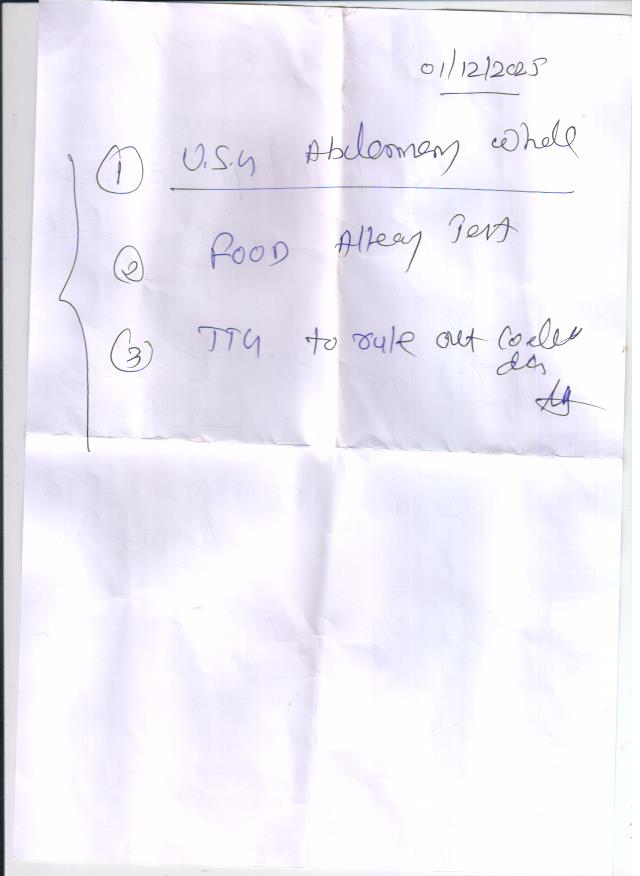 01/12/2025
① U.S.G Abdomen whole
② FOOD Allergy Test
③ TTG to rule out